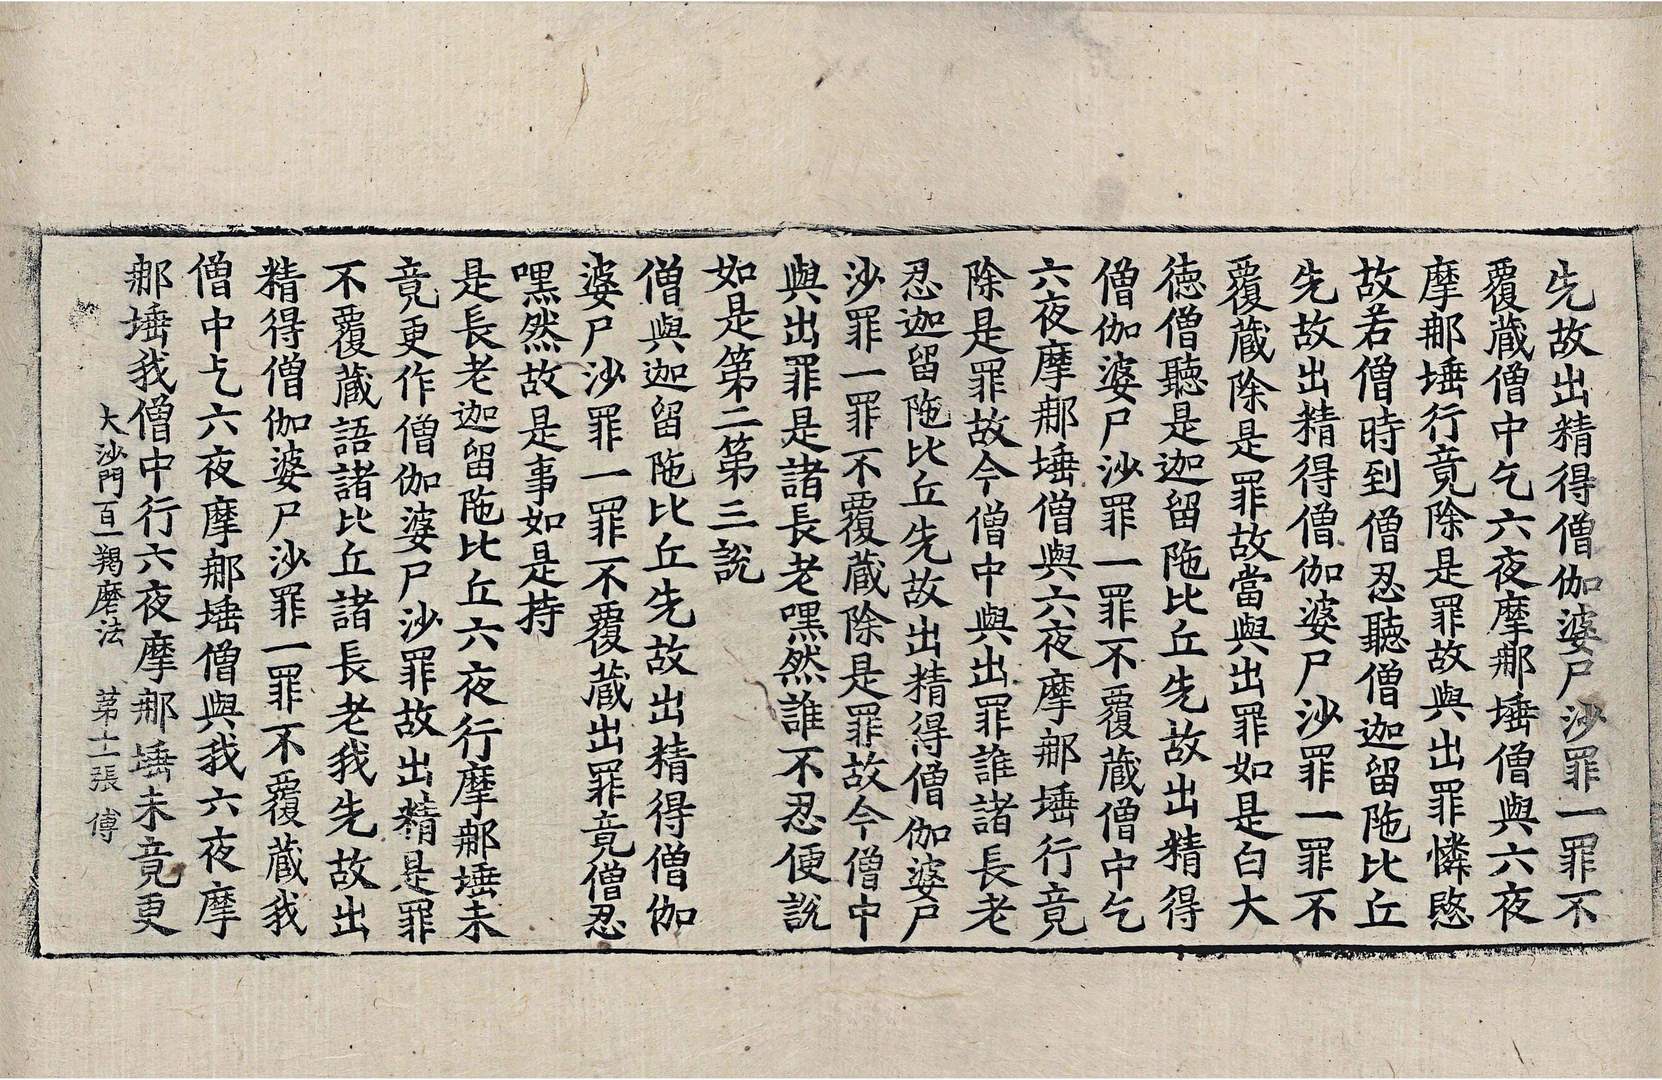 先故出精得僧伽婆尸沙罪一罪不
覆藏僧中乞六夜摩那埵僧與六夜
摩那埵行竟除是罪故與出罪憐愍
故若僧時到僧忍聽僧迦留陁比丘
先故出精得僧伽婆尸沙罪一罪不
覆藏除是罪故當與出罪如是白大
徳僧聽是迦留陁比丘先故出精得
僧伽婆尸沙罪一罪不覆藏僧中乞
六夜摩那埵僧與六夜摩那埵行竟
除是罪故今僧中與出罪誰諸長老
忍迦留陁比丘先故出精得僧伽婆尸
沙罪一罪不覆藏除是罪故今僧中
與出罪是諸長老嘿然誰不忍便說
如是第二第三說
僧與迦留陁比丘先故出精得僧伽
婆尸沙罪一罪不覆藏出罪竟僧忍
嘿然故是事如是持
是長老迦留陁比丘六夜行摩那埵未
竟更作僧伽婆尸沙罪故出精是罪
不覆藏語諸比丘諸長老我先故出
精得僧伽婆尸沙罪一罪不覆藏我
僧中乞六夜摩那埵僧與我六夜摩
那埵我僧中行六夜摩那埵未竟更
大沙門百一羯磨法 第十二張 傅